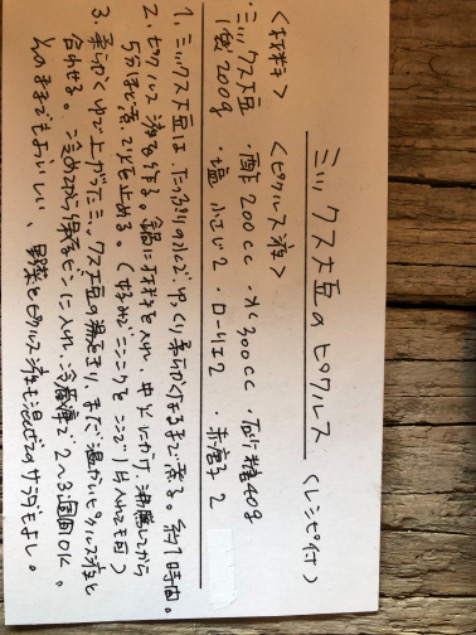 ミックス大豆のピクルス（レシピ付）
＜材料＞ ＜ピクルス液＞
・ミックス大豆 ・酢200cc ・水300cc ・砂糖40g
1袋 200g ・塩 小さい2 ・ローリエ2 ・赤唐辛子 2
1. ミックス大豆は、たっぷりの水で、ゆっくり柔らかくなるまで煮る。約1時間。
2. ピクルス液を作る。鍋に材料を入れ、中火にかけ、沸騰してから
5分ほど煮て火を止める。（好みでニンニクをここで1片入れても可）
3. 柔らかくゆで上がったミックス大豆の湯をきり、まだ温かいピクルス液と
合わせる。冷めたら保存ビンに入れ、冷蔵庫で2〜3週間OK。
そのままでもよいしい、野菜とピクルス液も混ぜてのサラダもよし。